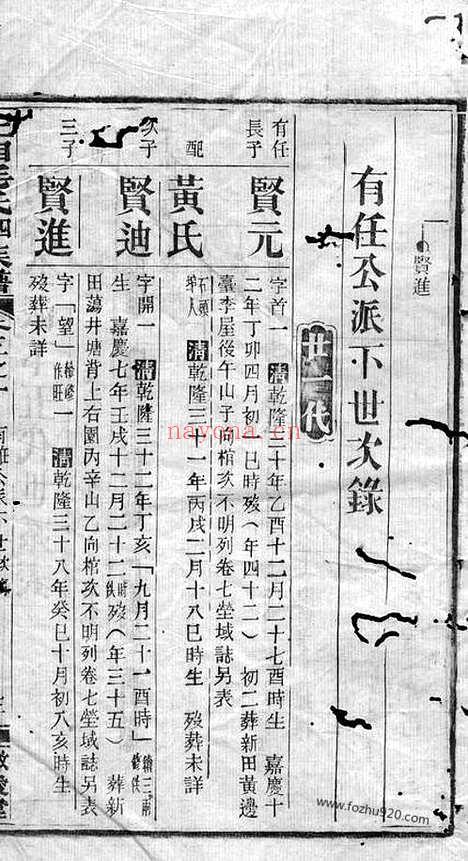 賢進
有任公派下世次錄
廿一代
有任長子
賢元
字首一 清乾隆三十年乙酉十二月二十七酉時生 嘉慶十
二年丁卯四月初一巳時歿(年四十二) 初二葬新田黃邊
臺李屋後午山子向棺次不明列卷七塋域誌另表
配
黃氏
石頭
清乾隆三十一年丙戌二月十八巳時生 歿葬未詳
次子
賢迪
字開一 清乾隆三十二年丁亥「九月二十一酉時」
生 嘉慶七年壬戌十二月二十二 歿(年三十五) 葬新
田蕩井塘背上右園丙辛山乙向棺次不明列卷七塋域誌另表
三子
賢進
字「望」 一 清乾隆三十八年癸巳十月初八亥時生
歿葬未詳
nayona.cn
www.fozhu920.com